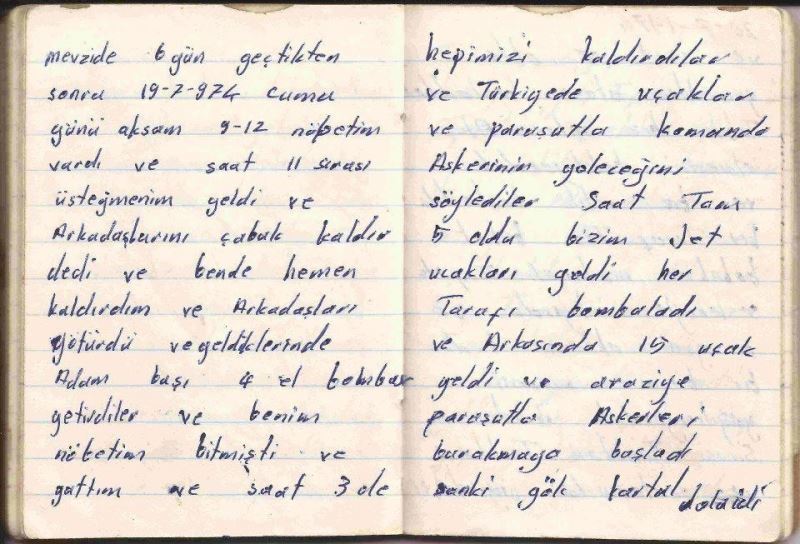 mevzide 6 gün geçtikten
sonra 19-7-974 cuma
günü aksam 9-12 nöbetim
vardı ve saat 11 sırası
üsteğmenim geldi ve
Arkadaşlarını çabuk kaldır
dedi ve bende hemen
kaldırdım ve Arkadaşları
götürdü ve geldiklerinde
Adam başı 4 el bombası
getirdiler ve benim
nöbetim bitmişti ve
yattım ve saat 3 de
hepimizi kaldırdılar
ve Türkiyede uçaklar
ve paraşutla komando
Askerinin geleceğini
söylediler Saat Tam
5 oldu bizim Jet
ucakları geldi her
Tarafı bombaladı
ve Arkasında 15 uçak
geldi ve araziye
paraşutla Askerleri
burakmaga başladı
sanki gök kartal doluidi